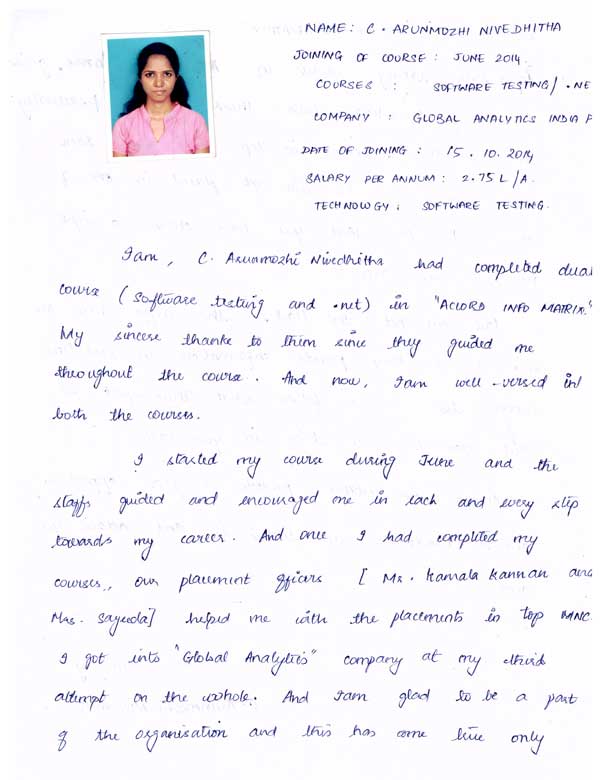 NAME: C. ARUNMOZHI NIVEDHITHA
JOINING OF COURSE: JUNE 2014
COURSES : SOFTWARE TESTING/.NE
COMPANY : GLOBAL ANALYTICS INDIA P
DATE OF JOINING : 15.10.2014
SALARY PER ANNUM: 2.75 L/A.
TECHNOLOGY: SOFTWARE TESTING.
I am, C. Arunmozhi Nivedhitha had completed dual
course (software testing and .net) in "ACCORD INFO MATRIX."
My sincere thanks to them since they guided me
throughout the course. And now, I am well-versed in
both the courses.
I started my course during June and the
staffs guided and encouraged me in each and every step
towards my career. And once I had completed my
courses, our placement officers [Mr. Kamala Kannan and
Mrs. Sayeeda] helped me with the placements in top MNC.
I got into "Global Analytics" company at my third
attempt on the whole. And I am glad to be a part
of the organisation and this has come true only